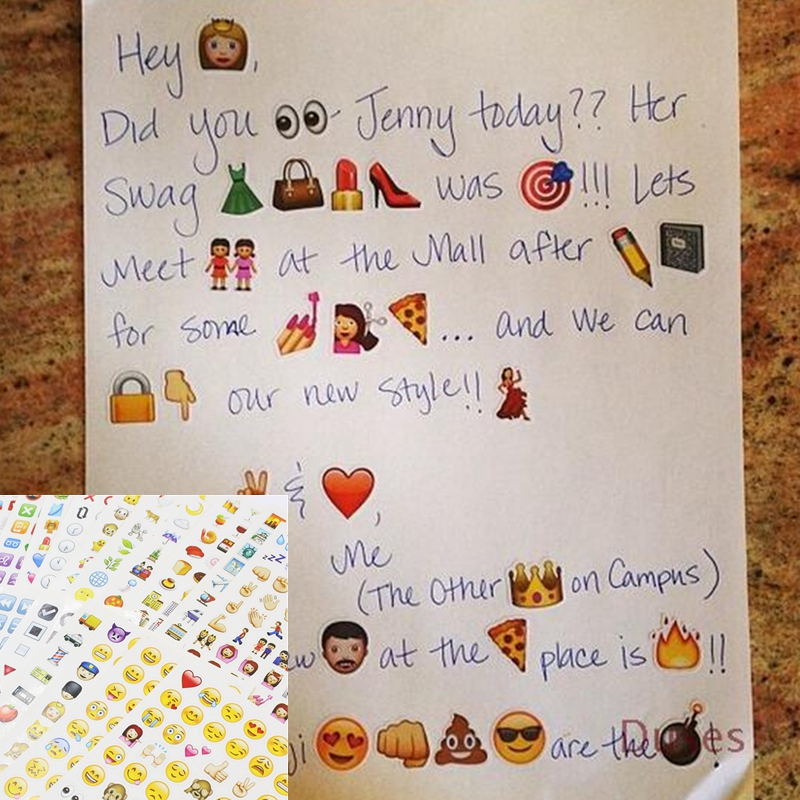 Hey 👸,
Did you 👀 Jenny today?? Her
Swag 👗👜💄👠 was 🎯!!! Lets
Meet 👭 at the Mall after ✏️📓
for some 💅💇🍕... and we can
🔒👇 our new style!! 💃
✌️ & ❤️,
Me
(The Other 👑 on Campus)
👨 at the 🍕 place is 🔥!!
😍👊💩😎 are the 💣!